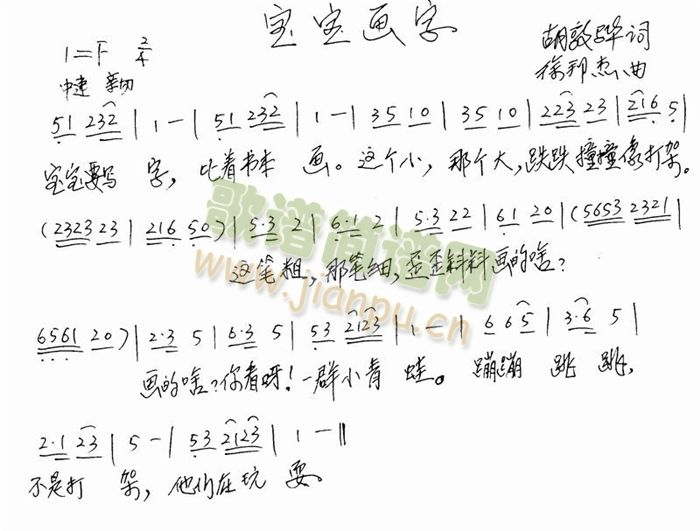 宝宝画字
1=F 2/4
中速 亲切
胡敦骅词
徐邦杰曲
51 232 | 1 - | 51 232 | 1 - | 35 10 | 35 10 | 223 23 | 216 5 |
宝宝要写 字，比着书本 画。这个小，那个大，跌跌撞撞像打架。
(2323 23 | 216 50) | 5·3 2 | 6·1 2 | 5·3 22 | 61 20 | (5653 2321 |
这笔粗，那笔细，歪歪斜斜画的啥？
6561 20) | 2·3 5 | 6·3 5 | 53 2123 | 1 - | 6 65 | 3·6 5 |
画的啥？你看呀！一群小青 蛙。 蹦蹦 跳 跳，
2·1 23 | 5 - | 53 2123 | 1 - ‖
不是打 架，他们在玩 耍。
歌谱简谱网
www.jianpu.cn